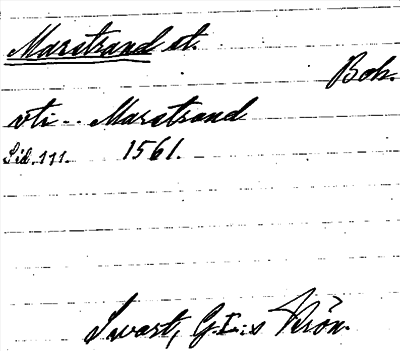 Marstrand st.
Boh.
vti -- Marstrand
Sid. 111. 1561.
Swart, G. I:s Krön.